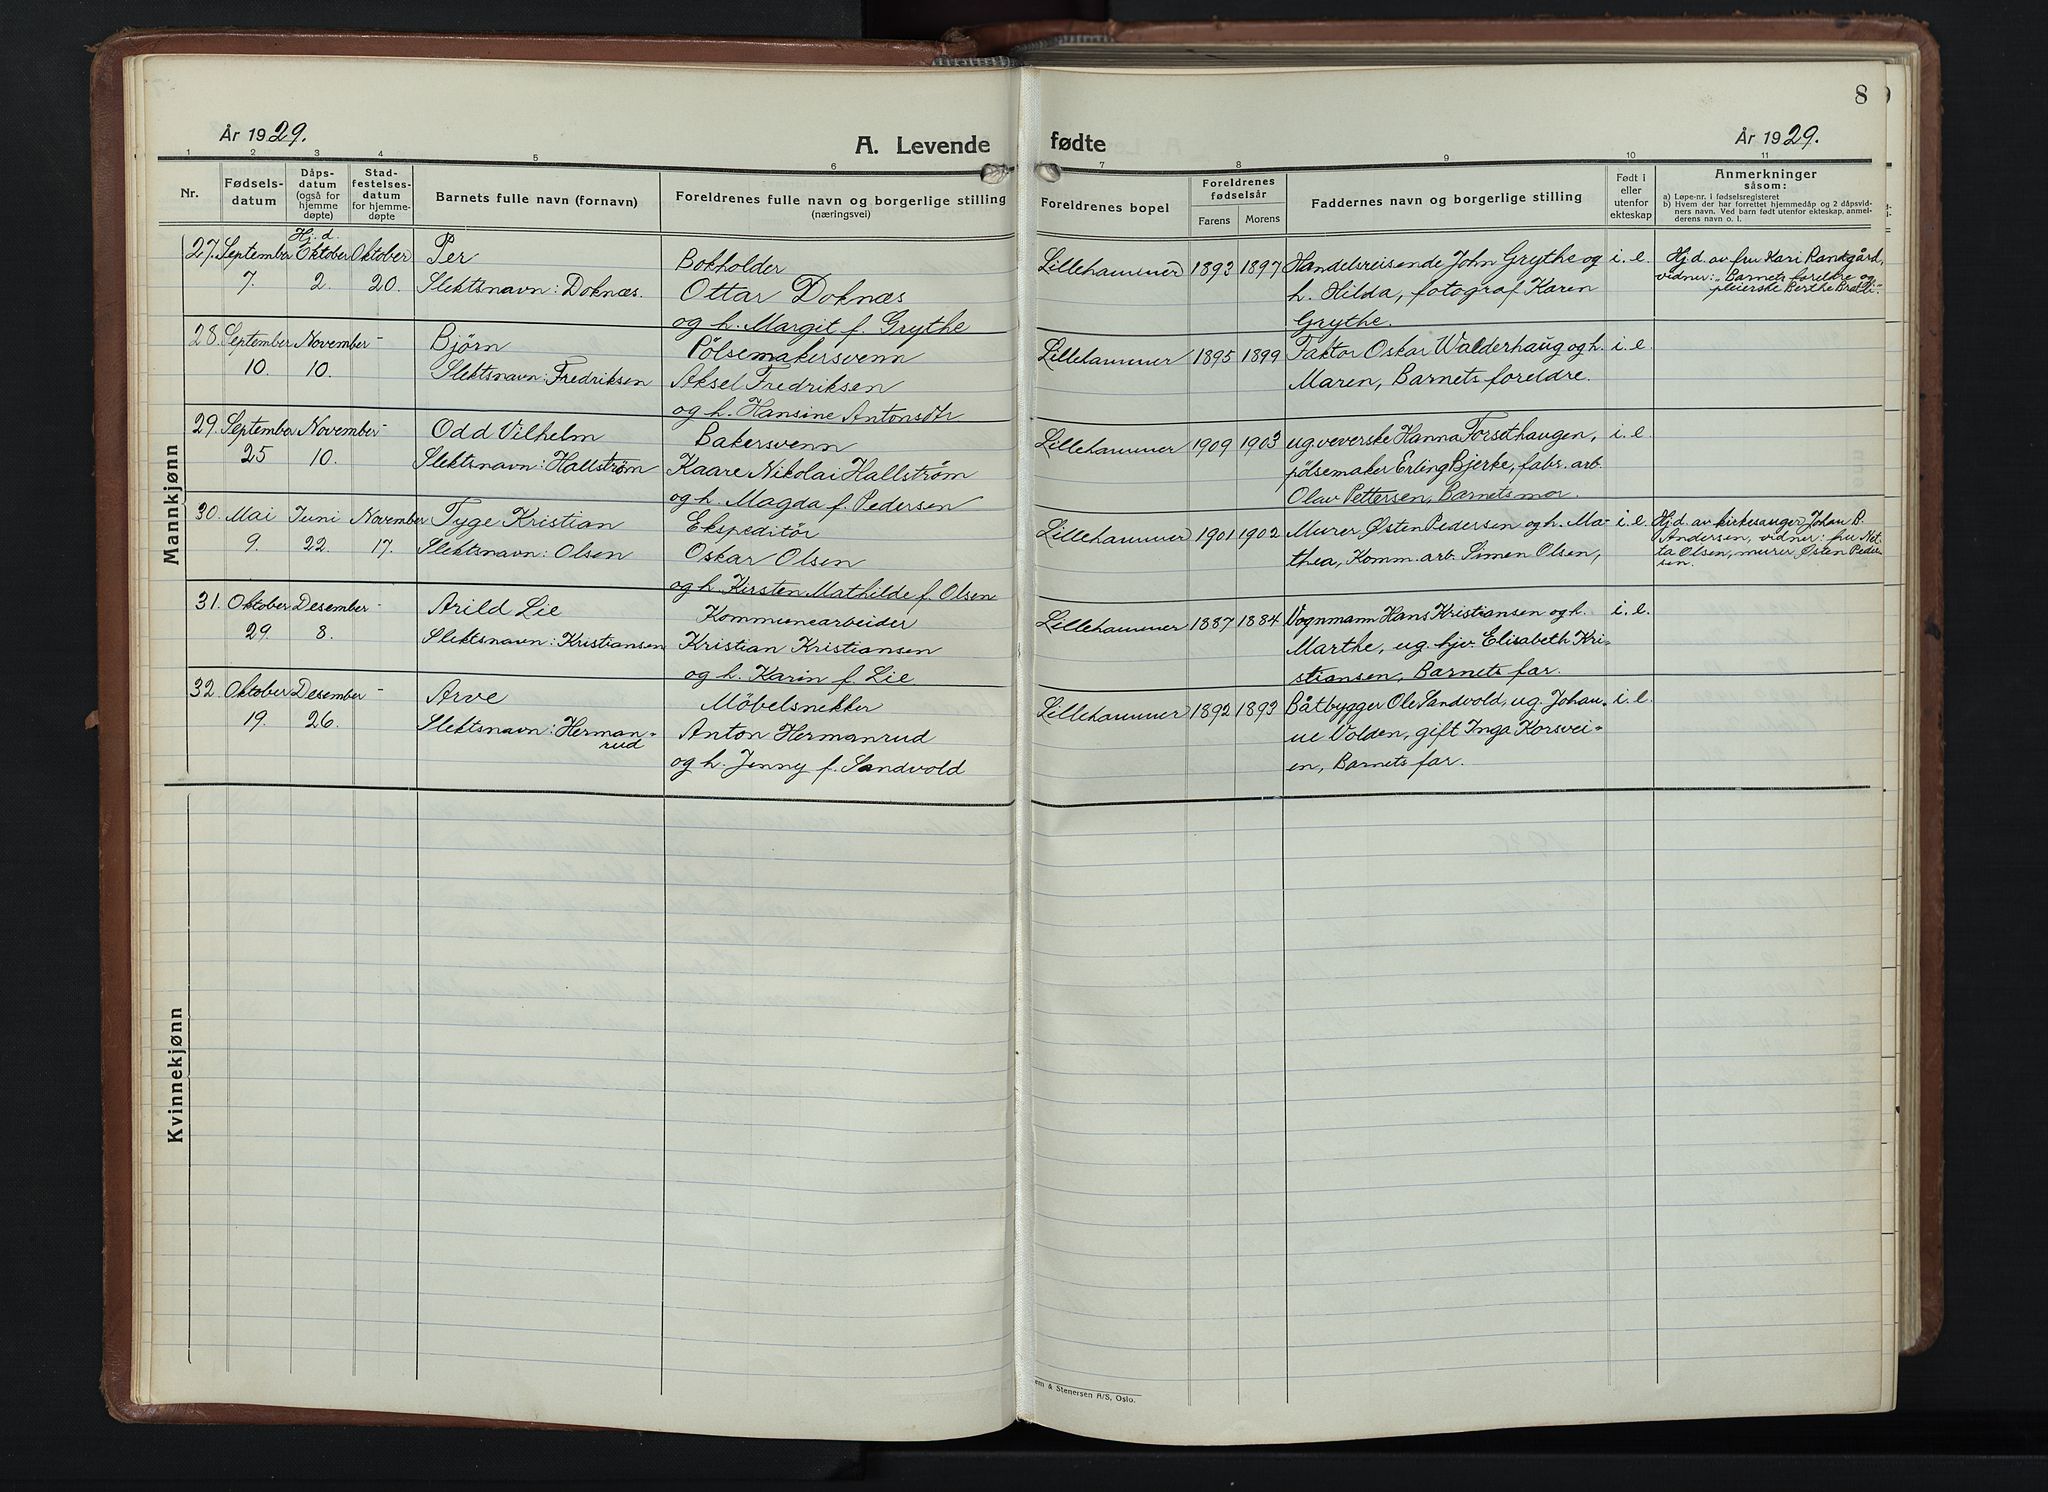 8
År 1929.
A. Levende fødte
År 1929.
1 2 3 4 5 6 7 8 9 10 11
Nr.
Fødsels-
datum
Dåps-
datum
(også for
hjemme
døpte)
Stad-
festelses-
datum
for hjemme-
døpte
Barnets fulle navn (fornavn)
Foreldrenes fulle navn og borgerlige stilling
(næringsvei)
Foreldrenes bopel
Foreldrenes
fødselsår
Farens Morens
Faddernes navn og borgerlige stilling
Født i
eller
utenfor
ekteskap
Anmerkninger
såsom:
a) Løpe-nr. i fødselsregisteret
b) Hvem der har forrettet hjemmedåp og 2 dåpsvid-
ners navn. Ved barn født utenfor ekteskap, anmel-
derens navn o. l.
Mannkjønn
Hj.d.
27. September Oktober Oktober Per Bokholder
7. 2. 20. Slektsnavn: Doknæs. Ottar Doknæs
og h. Margit f. Grythe
Lillehammer 1893 1897 Handelsreisende John Grythe og i. e.
h. Hilda, fotograf Karen
Grythe.
Hj.d. av fru Kari Rankgård,
vidner: Barnets foreldre og
pleierske Berthe
28. September November - Bjørn Pølsemakersvenn
10. 10. Slektsnavn: Fredriksen Aksel Fredriksen
og h. Hansine Antonsdtr
Lillehammer 1895 1899 Faktor Oskar Walderhaug og h. i. e.
Maren, Barnets foreldre.
29. September November - Odd Vilhelm Bakersvenn
25 10. Slektsnavn: Hallstrøm Kaare Nikolai Hallstrøm
og h. Magda f. Pedersen
Lillehammer 1909 1903 ug. veverske Hanna Forsethaugen, i. e.
pølsemaker Erling Bjerke, fabr. arb.
Olav Pettersen, Barnets mor.
30. Mai Juni November Tyge Kristian Ekspeditør
9. 22. 17. Slektsnavn: Olsen Oskar Olsen
og h. Kirsten Mathilde f. Olsen
Lillehammer 1901 1902 Murer Østen Pedersen og h. Ma- i. e.
thea, Komm. arb. Simen Olsen,
Hj.d. av kirkesanger Johan B.
Andersen, vidner: fru Net-
ta Olsen, murer Østen Peder-
sen.
31. Oktober Desember - Arild Lie Kommunearbeider
29. 8. Slektsnavn: Kristiansen Kristian Kristiansen
og h. Karin f. Lie
Lillehammer 1887 1884 Vognmann Hans Kristiansen og h. i. e.
Marthe, ug. hjv. Elisabeth Kri-
stiansen, Barnets far.
32. Oktober Desember - Arve Møbelsnekker
19. 26. Slektsnavn: Herman-
rud Anton Hermanrud
og h. Jenny f. Sandvold
Lillehammer 1892 1893 Båtbygger Ole Sandvold, ug. Johan- i. e.
ne Volden, gift Inga Korsvei-
en, Barnets far.
Kvinnekjønn
em & Stenersen A/S, Oslo.